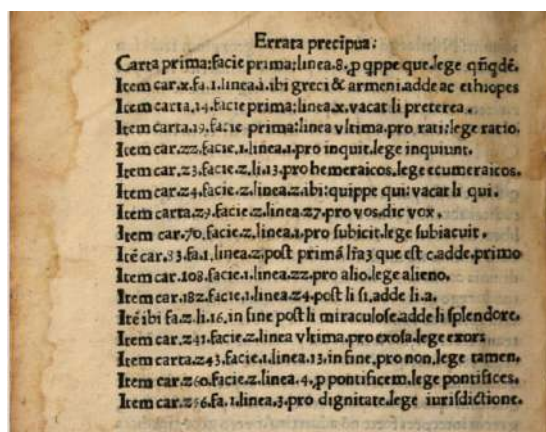 Errata precipua:
Carta prima: facie prima: linea.8. ꝓ qppe que. lege qñqdē.
Item car.x.fa.1.linea.i. ibi greci & armeni. adde ac ethiopes
Item carta.14.facie prima: linea.x. vacat li preterea.
Item carta.19.facie prima: linea vltima. pro rati: lege ratio.
Item car.zz.facie.1.linea.1. pro inquit. lege inquiunt.
Item car.z3.facie.z.li.13. pro hemeraicos. lege ecumeraicos.
Item car.z4.facie.z.linea.z. ibi: quippe qui: vacat li qui.
Item carta.z9.facie.z.linea.z7. pro vos. dic vox.
Item car.70.facie.z.linea.1. pro subicit. lege subiacuit.
Itē car.83.fa.1.linea.z. post primā lr̄a3 que est c. adde. primo
Item car.108.facie.1.linea.zz. pro alio. lege alieno.
Item car.18z.facie.1.linea.z4. post li si. adde li.a.
Itē ibi fa.z.li.16. in fine post li miraculose. adde li splendore.
Item car.z41.facie.z.linea vltima. pro exosa. lege exors
Item carta.z43.facie.1.linea.13. in fine. pro non. lege tamen.
Item car.z60.facie.z.linea.4. ꝓ pontificem. lege pontifices.
Item car.z56.fa.1.linea.3. pro dignitate. lege iurisdictione.